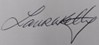 Laura Kelly